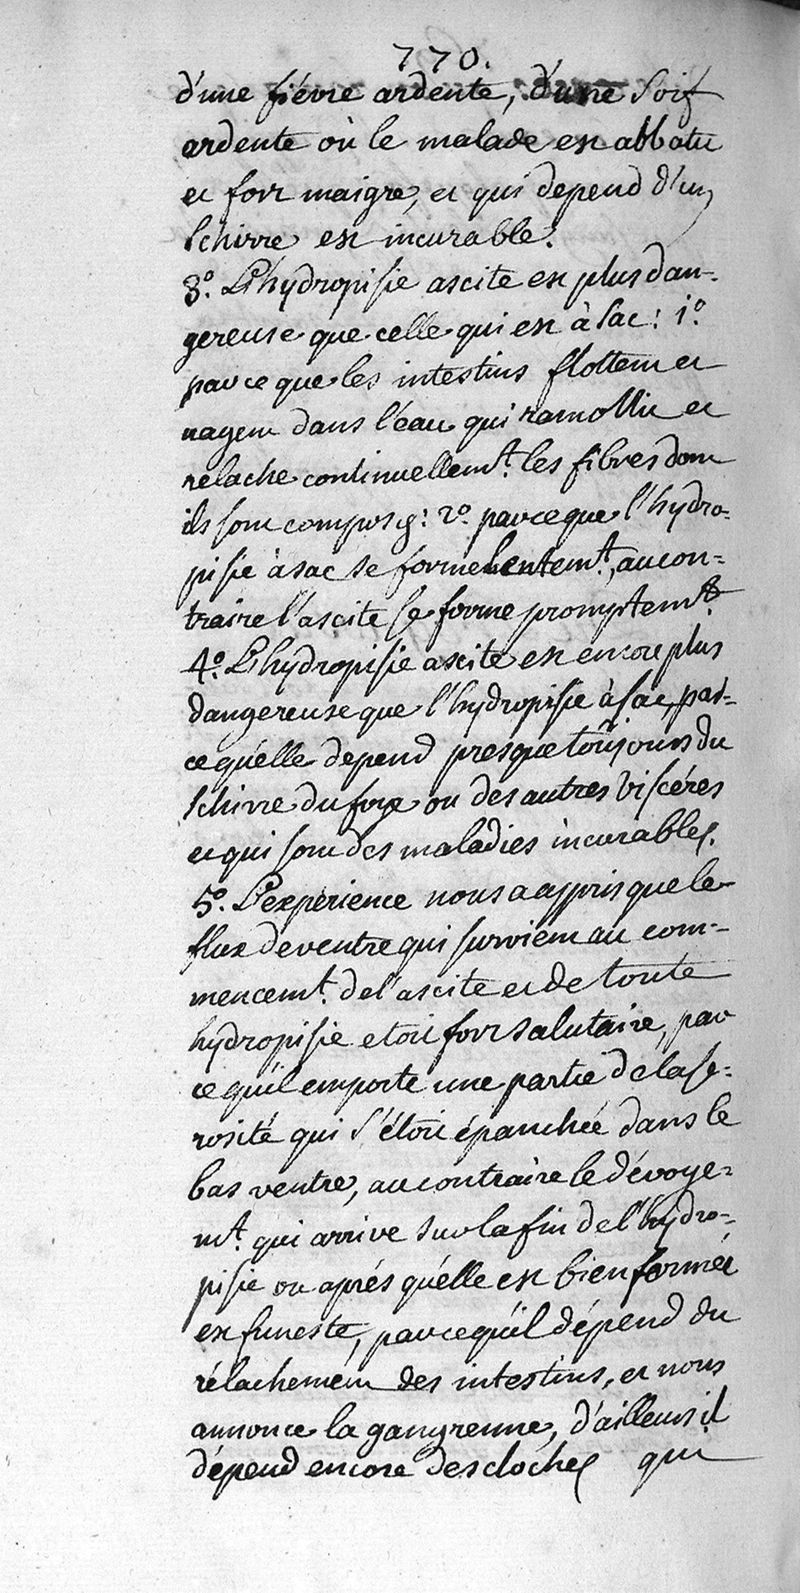 770.
d'une fiévre ardente, d'une soif
ardente où le malade est abbatu
et fort maigre, et qui depend d'un
schirre est incurable.
3º. L'hydropisie ascite est plus dan-
gereuse que celle qui est à sac: 1º.
parce que les intestins flottent et
nagent dans l'eau qui ramollit et
relache continuellemt. les fibres dont
ils sont composés: 2º. parceque l'hydro-
pisie à sac se forme lentemt., au con-
traire l'ascite se forme promptemt.
4º. L'hydropisie ascite est encore plus
dangereuse que l'hydropisie à sac, par-
ce qu'elle depend presque toujours du
schirre du foye ou des autres viscéres
et qui sont des maladies incurables.
5º. L'expérience nous a appris que le
flux de ventre qui survient au com-
mencemt. de l'ascite et de toute
hydropisie etoit fort salutaire, par
ce qu'il emporte une partie de la sé-
rosité qui s'étoit épanchée dans le
bas ventre, au contraire le dévoye-
mt. qui arrive sur la fin de l'hydro-
pisie ou aprés qu'elle est bien formée
est funeste, parcequ'il dépend du
rélachement des intestins, et nous
annonce la gangrenne, d'ailleurs il
dépend encore des cloches qui